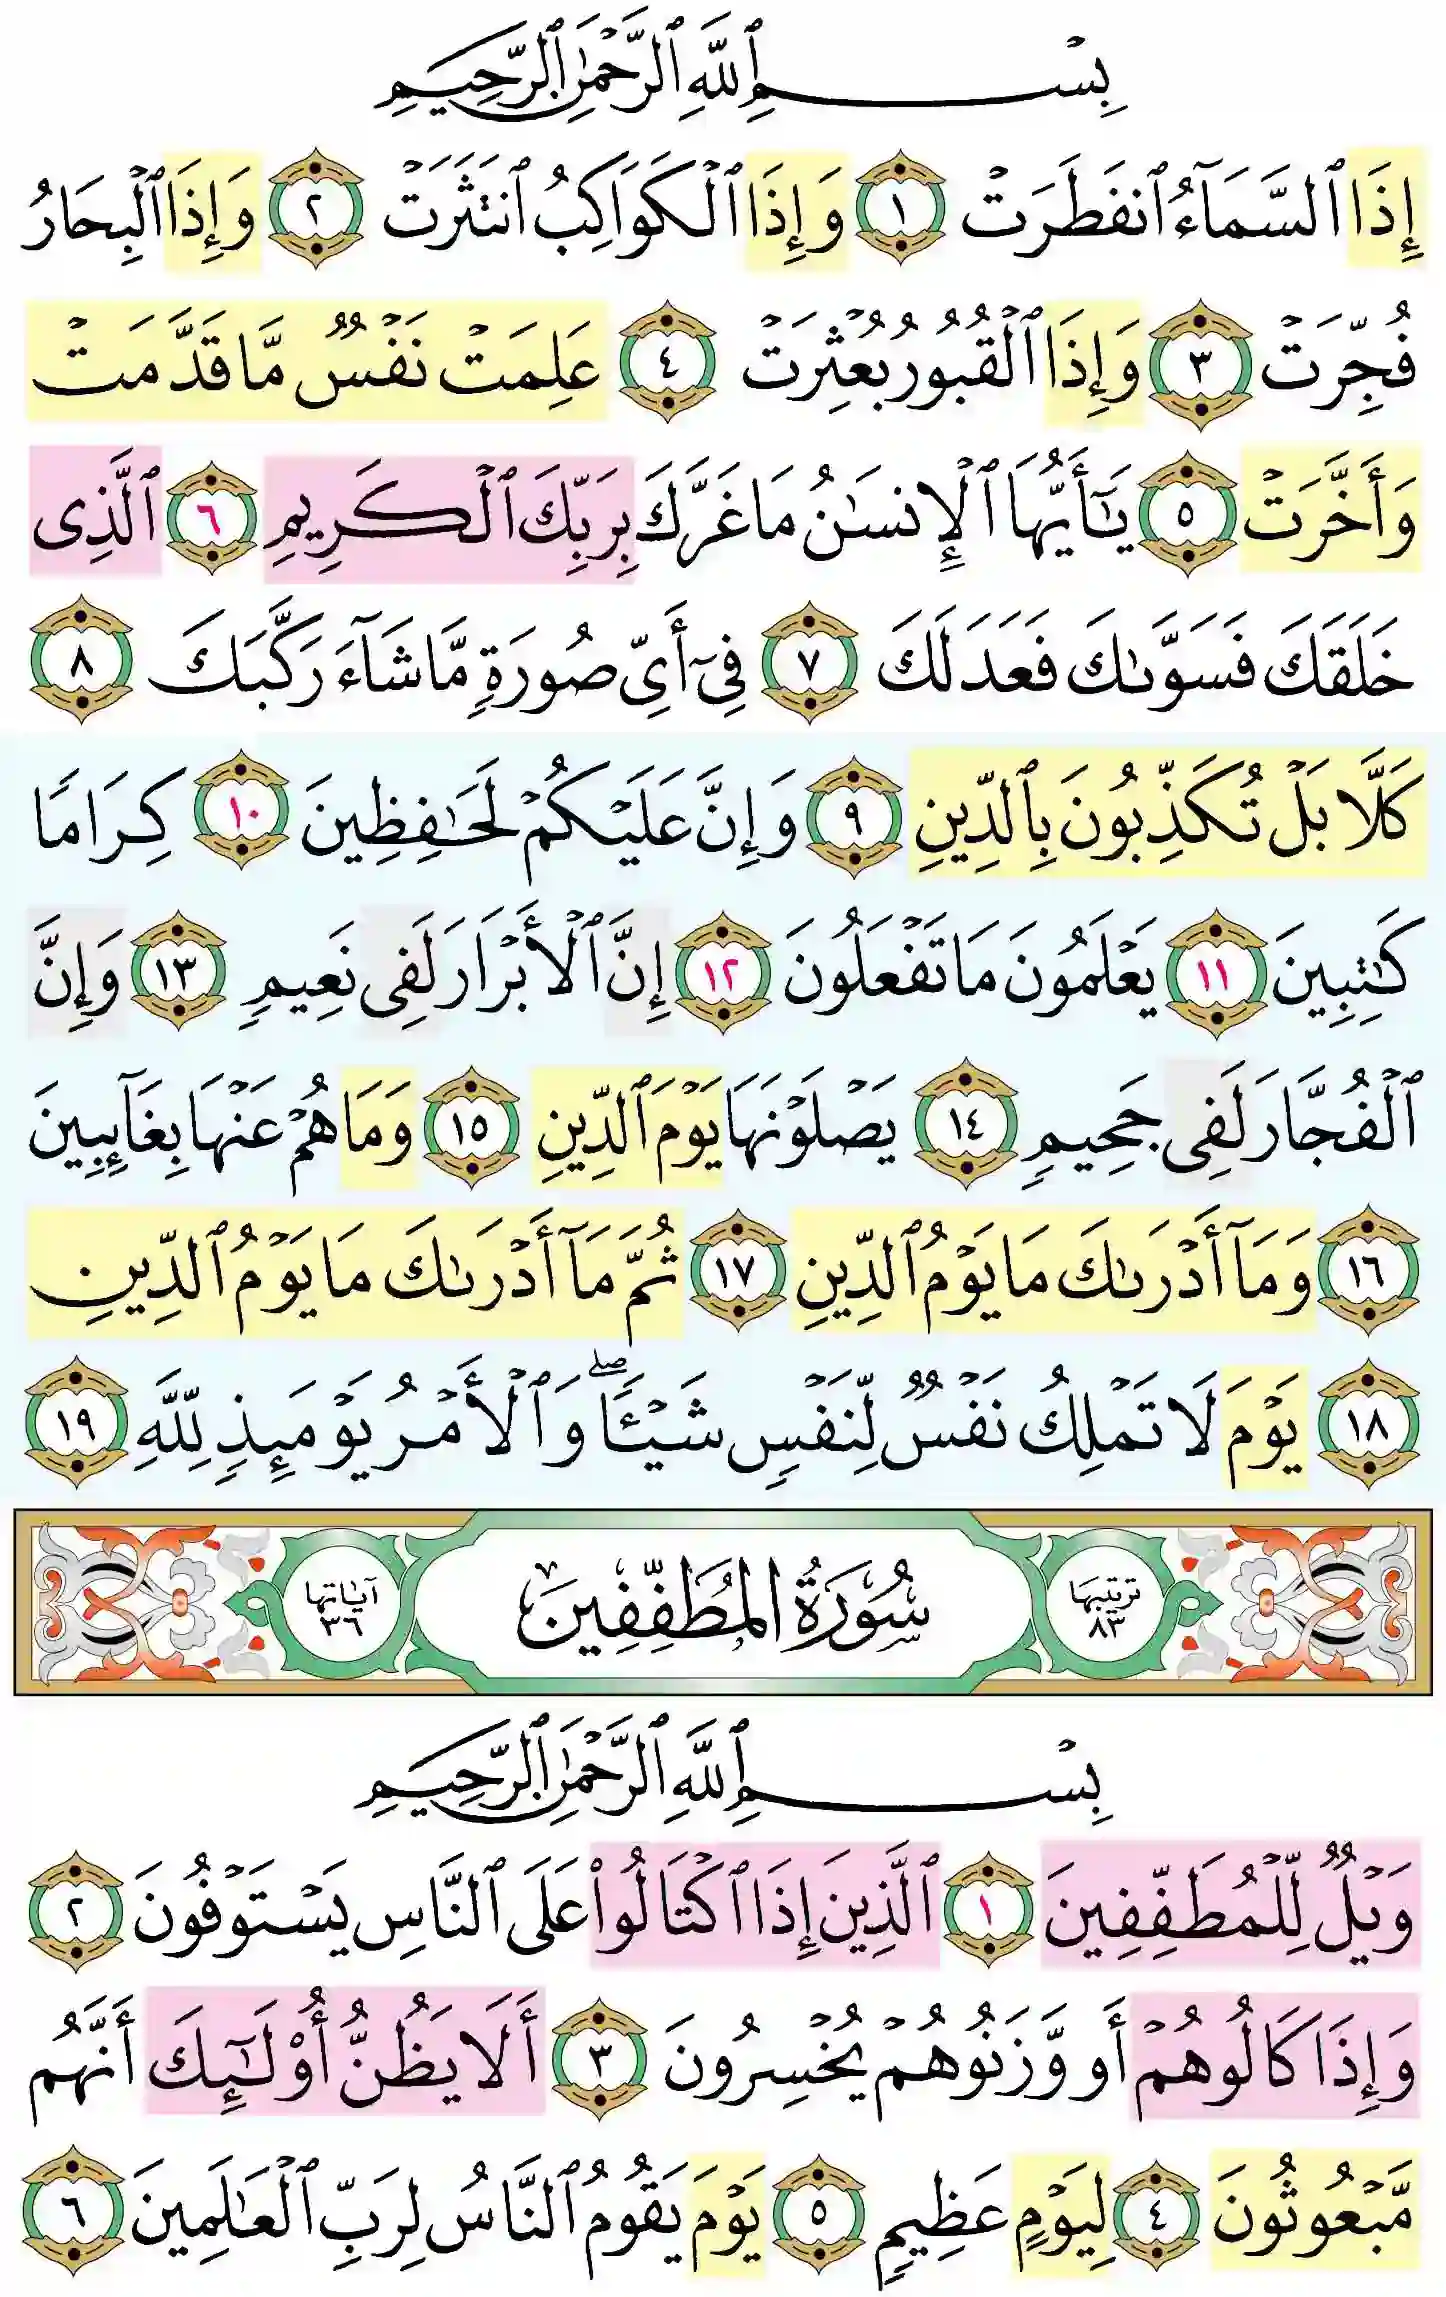 بِسۡمِ ٱللَّهِ ٱلرَّحۡمَٰنِ ٱلرَّحِيمِ
إِذَا ٱلسَّمَآءُ ٱنفَطَرَتۡ ١ وَإِذَا ٱلۡكَوَاكِبُ ٱنتَثَرَتۡ ٢ وَإِذَا ٱلۡبِحَارُ
فُجِّرَتۡ ٣ وَإِذَا ٱلۡقُبُورُ بُعۡثِرَتۡ ٤ عَلِمَتۡ نَفۡسٞ مَّا قَدَّمَتۡ
وَأَخَّرَتۡ ٥ يَٰٓأَيُّهَا ٱلۡإِنسَٰنُ مَا غَرَّكَ بِرَبِّكَ ٱلۡكَرِيمِ ٦ ٱلَّذِى
خَلَقَكَ فَسَوَّىٰكَ فَعَدَلَكَ ٧ فِىٓ أَىِّ صُورَةٖ مَّا شَآءَ رَكَّبَكَ ٨
كَلَّا بَلۡ تُكَذِّبُونَ بِٱلدِّينِ ٩ وَإِنَّ عَلَيۡكُمۡ لَحَٰفِظِينَ ١٠ كِرَامٗا
كَٰتِبِينَ ١١ يَعۡلَمُونَ مَا تَفۡعَلُونَ ١٢ إِنَّ ٱلۡأَبۡرَارَ لَفِى نَعِيمٖ ١٣ وَإِنَّ
ٱلۡفُجَّارَ لَفِى جَحِيمٖ ١٤ يَصۡلَوۡنَهَا يَوۡمَ ٱلدِّينِ ١٥ وَمَا هُمۡ عَنۡهَا بِغَآئِبِينَ
١٦ وَمَآ أَدۡرَىٰكَ مَا يَوۡمُ ٱلدِّينِ ١٧ ثُمَّ مَآ أَدۡرَىٰكَ مَا يَوۡمُ ٱلدِّينِ
١٨ يَوۡمَ لَا تَمۡلِكُ نَفۡسٞ لِّنَفۡسٖ شَيۡـٔٗاۖ وَٱلۡأَمۡرُ يَوۡمَئِذٖ لِّلَّهِ ١٩
ترتيبها ٨٣ سُورَةُ المُطَفِّفِينَ آياتها ٣٦
بِسۡمِ ٱللَّهِ ٱلرَّحۡمَٰنِ ٱلرَّحِيمِ
وَيۡلٞ لِّلۡمُطَفِّفِينَ ١ ٱلَّذِينَ إِذَا ٱكۡتَالُواْ عَلَى ٱلنَّاسِ يَسۡتَوۡفُونَ ٢
وَإِذَا كَالُوهُمۡ أَو وَّزَنُوهُمۡ يُخۡسِرُونَ ٣ أَلَا يَظُنُّ أُوْلَٰٓئِكَ أَنَّهُم
مَّبۡعُوثُونَ ٤ لِيَوۡمٍ عَظِيمٖ ٥ يَوۡمَ يَقُومُ ٱلنَّاسُ لِرَبِّ ٱلۡعَٰلَمِينَ ٦